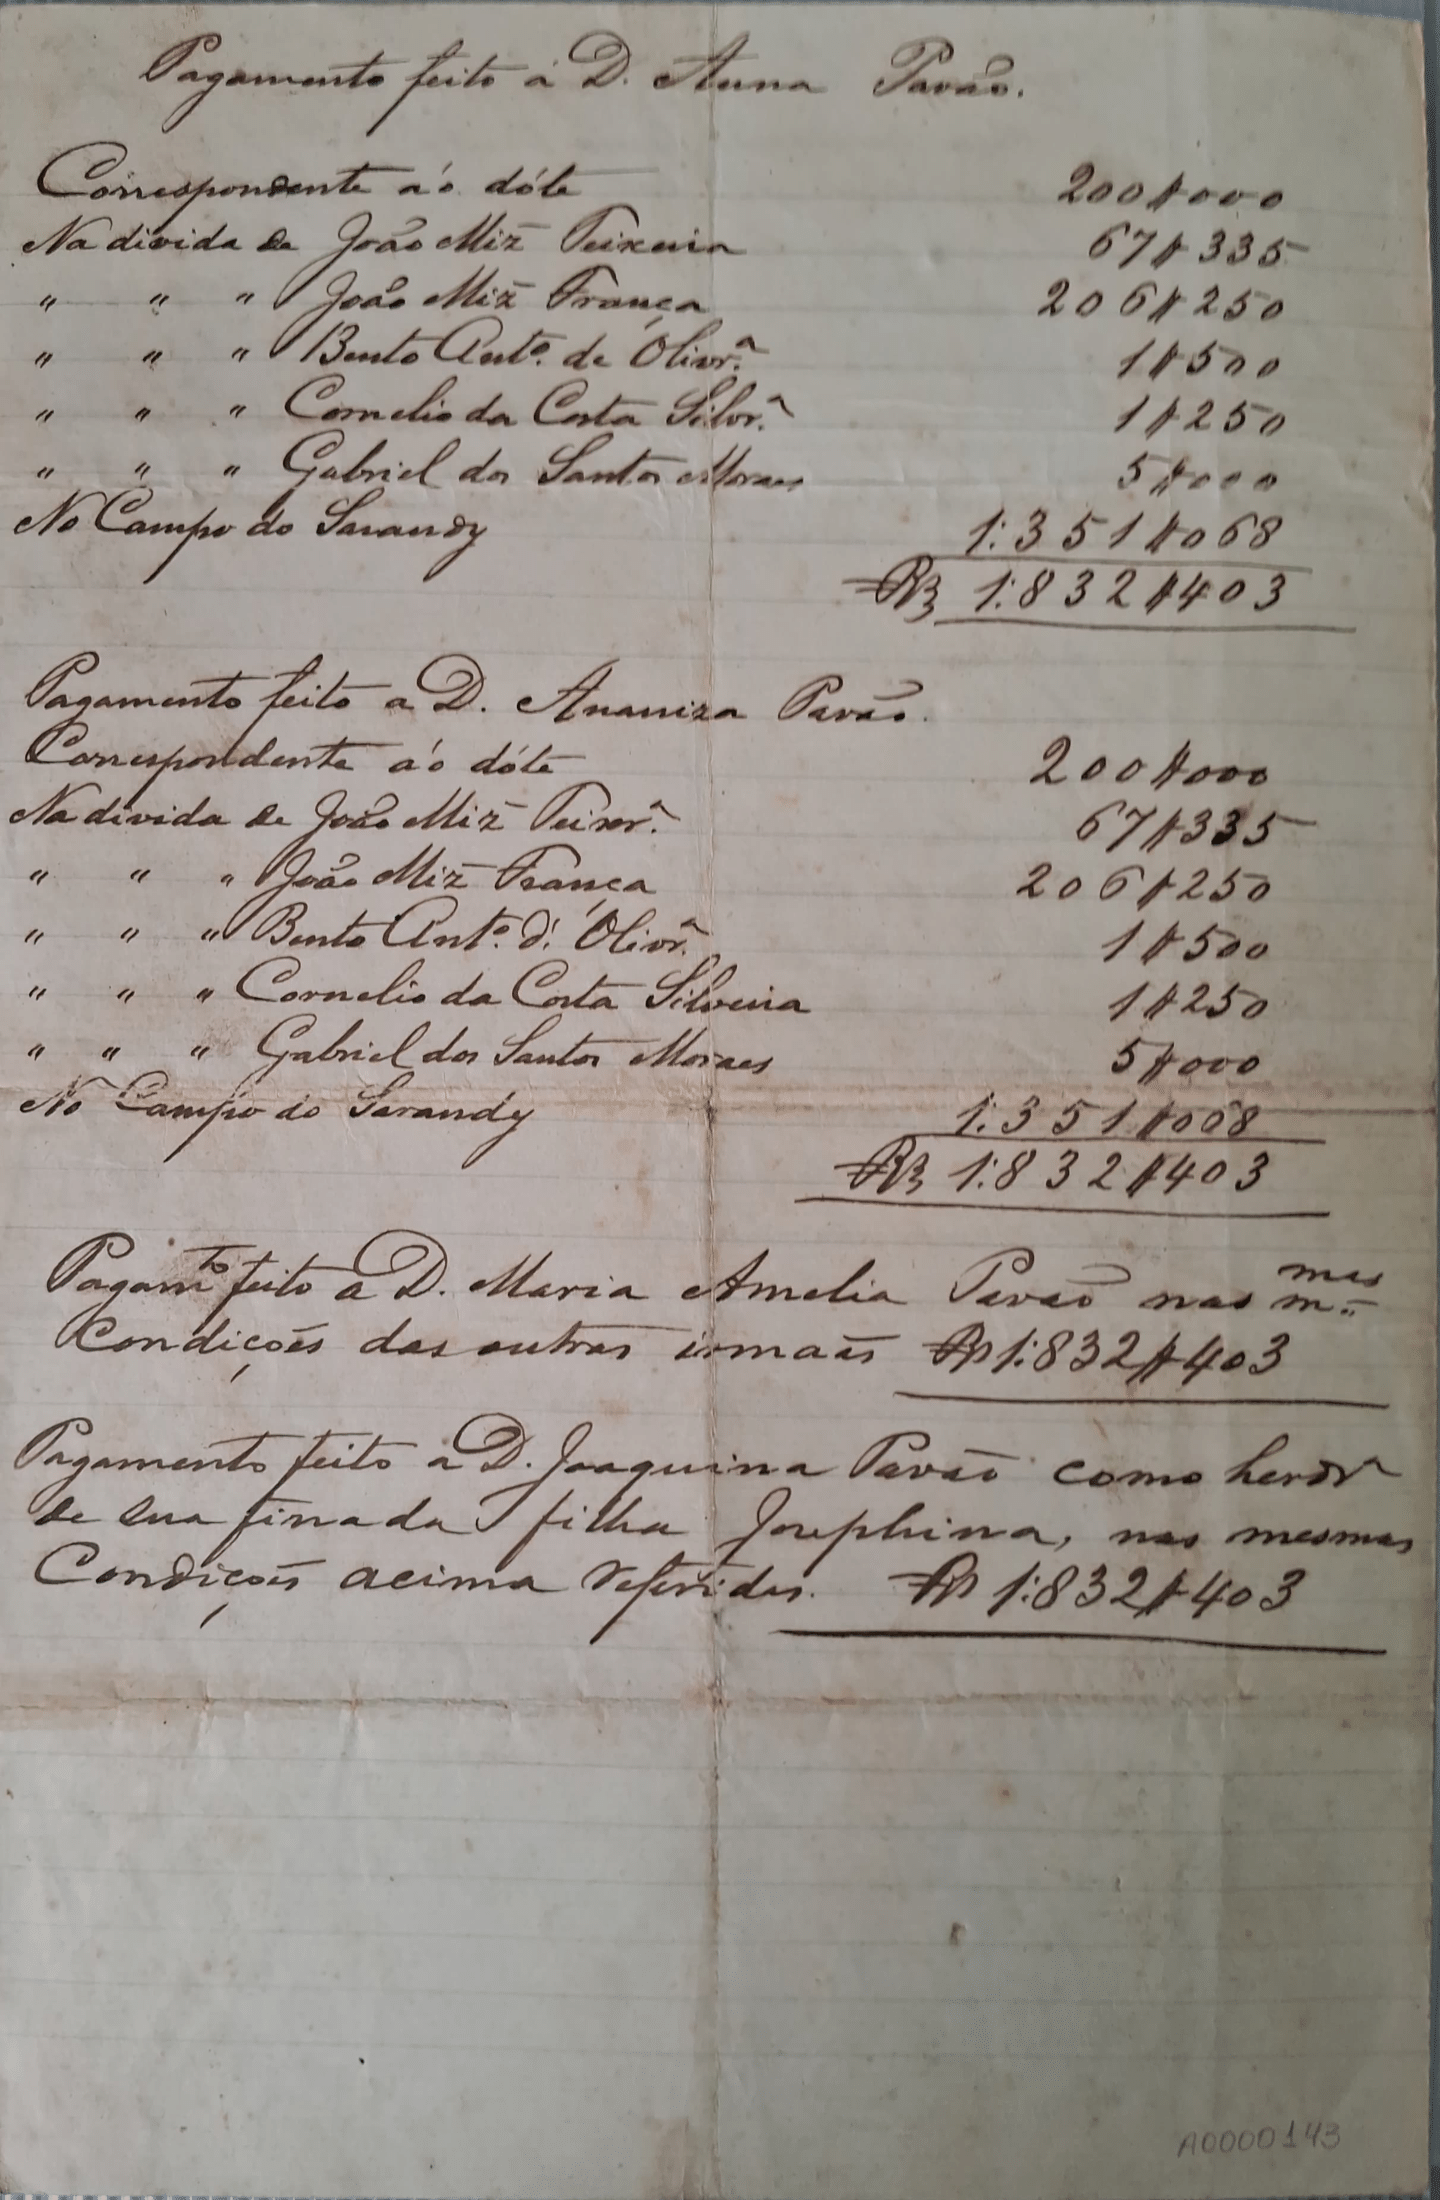 Pagamento feito á D. Anna Pavão.
Correspondente á'o dóte 200$000
Na divida de João Miz̃ Teixeira 67$335
" " " João Miz̃ França 206$250
" " " Bento Antº. de Olivrª. 1$500
" " " Cornelio da Costa Silvrª. 1$250
" " " Gabriel dos Santos Moraes 5$000
No Campo do Sarandy 1:351$068
Rs 1:832$403
Pagamento feito a D. Ananiza Pavão.
Correspondente á'o dóte 200$000
Na divida de João Miz̃ Teixrª. 67$335
" " " João Miz̃ França 206$250
" " " Bento Antº. d'Olivrª. 1$500
" " " Cornelio da Costa Silveira 1$250
" " " Gabriel dos Santos Moraes 5$000
No Campo do Sarandy 1:351$068
Rs 1:832$403
Pagamto feito a D. Maria Amelia Pavão nas mmas
Condições das outras irmaãs Rs 1:832$403
Pagamento feito a D. Joaquina Pavão como herdrª
de sua finada filha Josephina, nas mesmas
Condições acima referidas. Rs 1:832$403
A0000143